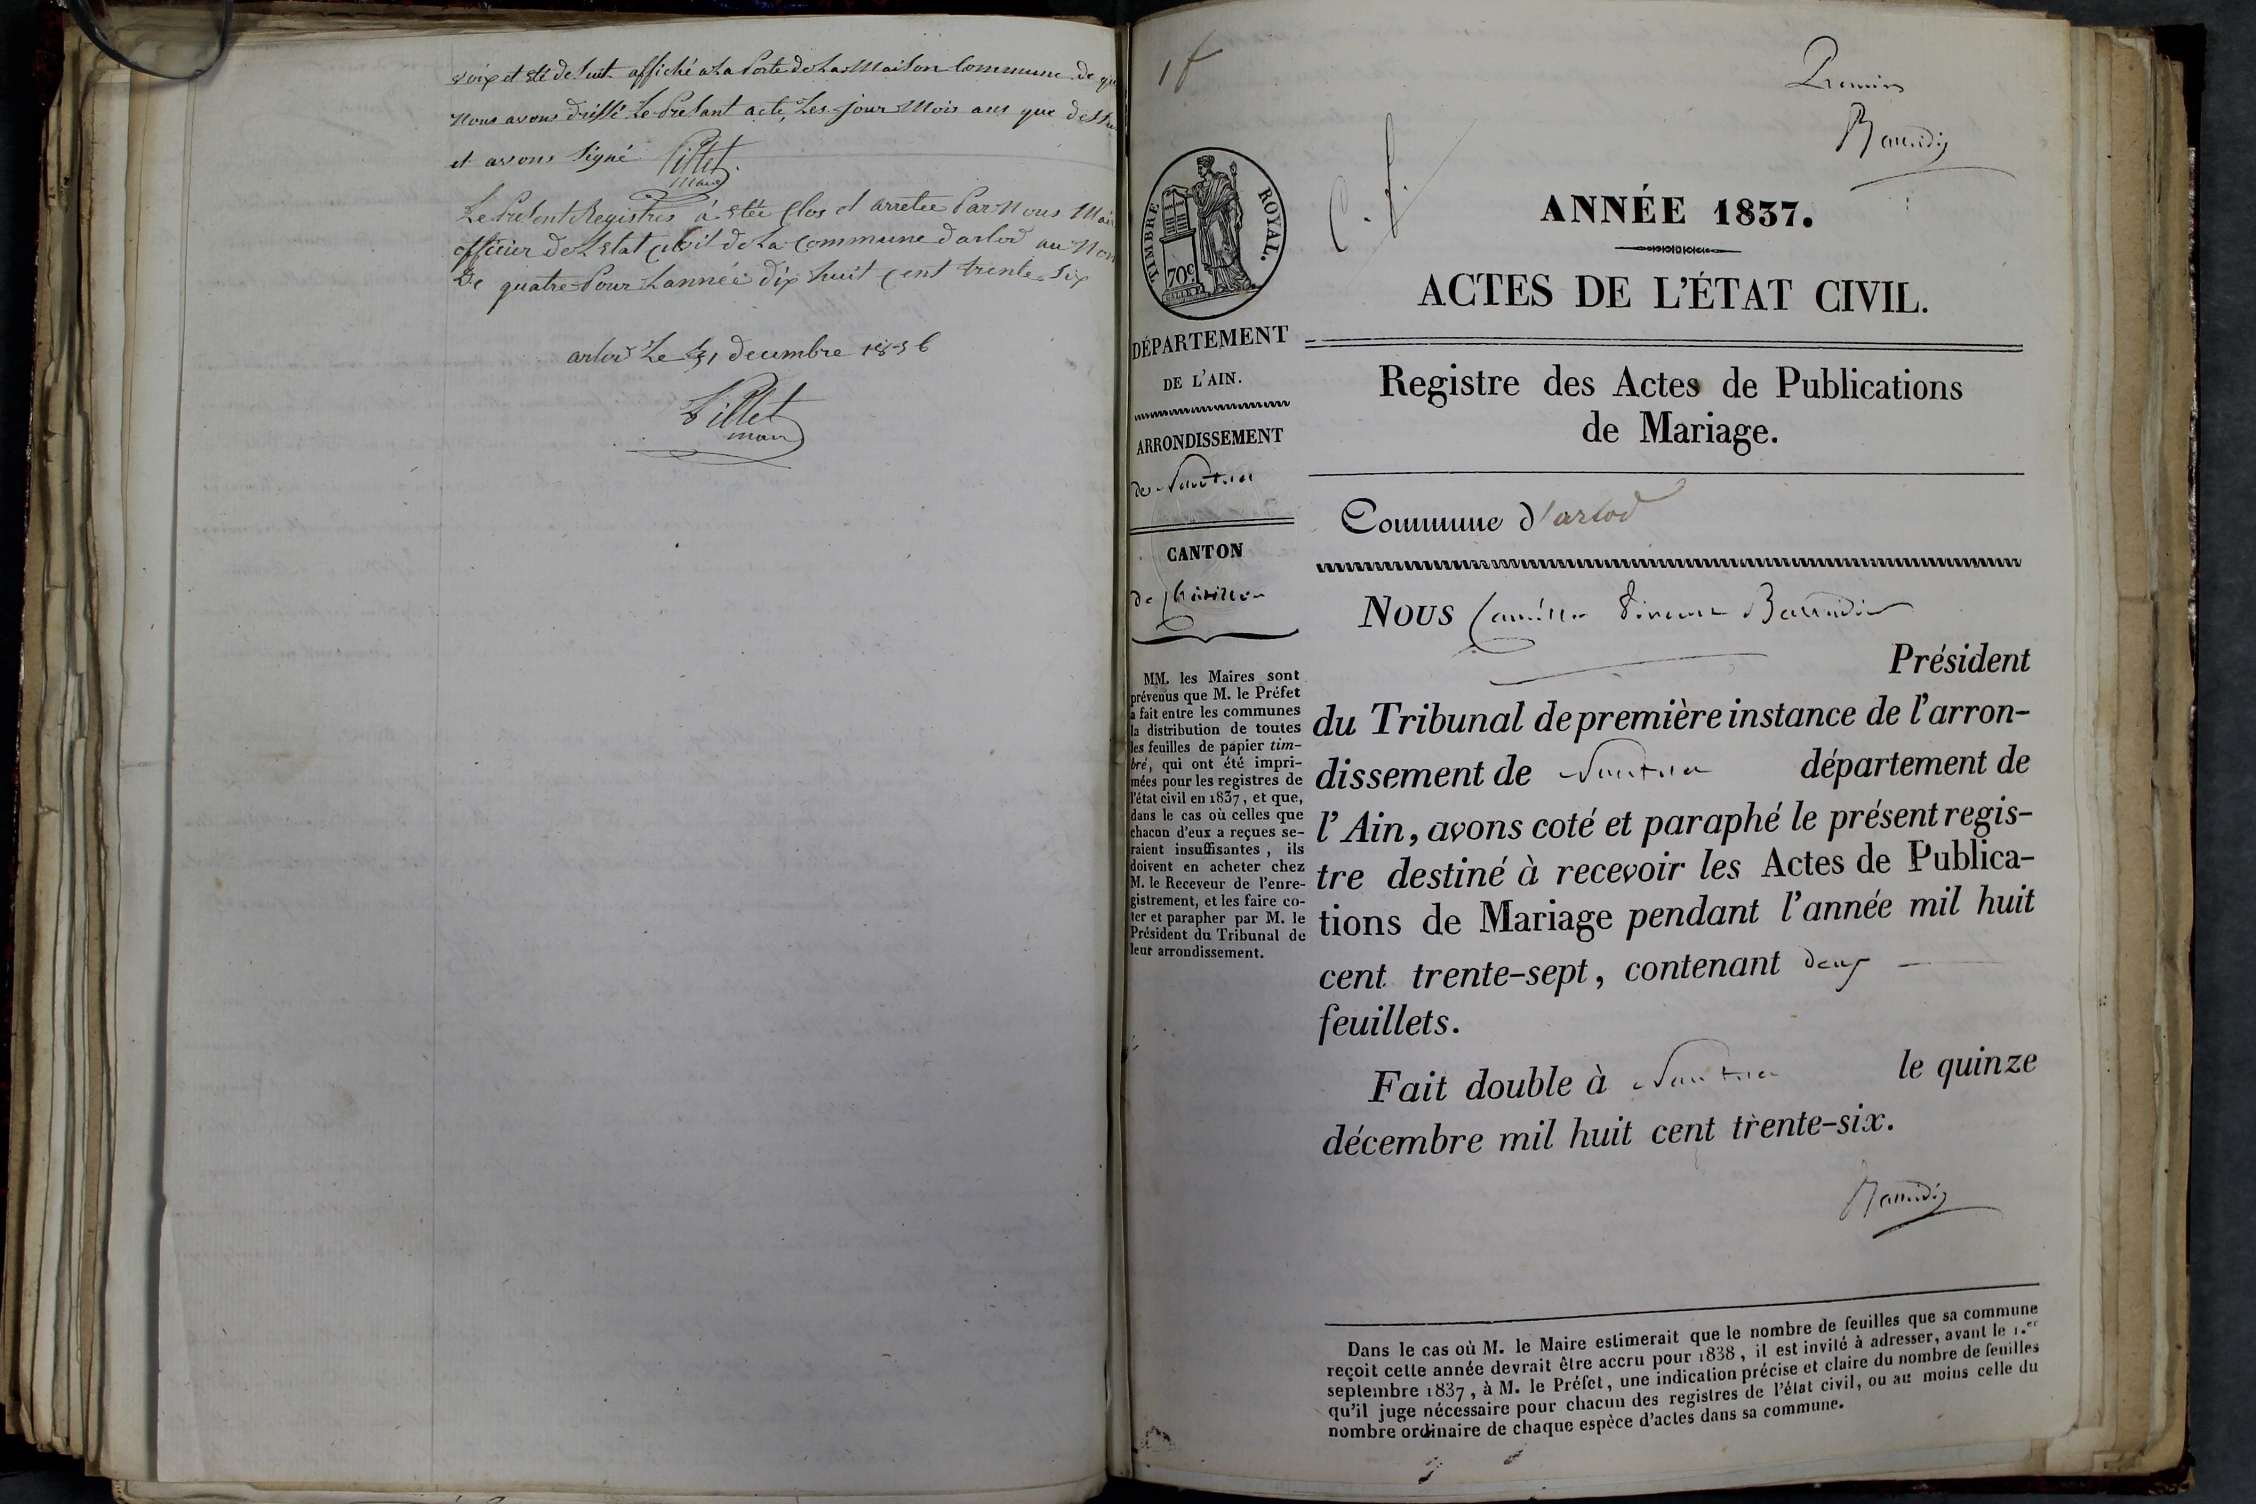 voix et été de suit affiché a la Porte de la Maison Commune de
Nous avons drissé Le Présant acte, Les jour Mois ans que dessu
et avons Signé Pillet
Maire
Le Présent Registres á etée Clos et arretee Par Nous Mair
officier de L'etat civil de La Commune d'arlod au Nom
De quatre Pour L'année dix huit Cent trente Six
arlod Le 31 decembre 1836
Pillet
maire
1 f
Premier
Baudin
C. f.
ANNÉE 1837.
ACTES DE L'ÉTAT CIVIL.
TIMBRE ROYAL.
70c
DÉPARTEMENT
DE L'AIN.
ARRONDISSEMENT
de Nantua
CANTON
de Châtillon
MM. les Maires sont
prévenus que M. le Préfet
a fait entre les communes
la distribution de toutes
les feuilles de papier tim-
bré, qui ont été impri-
mées pour les registres de
l'état civil en 1837, et que,
dans le cas où celles que
chacun d'eux a reçues se-
raient insuffisantes, ils
doivent en acheter chez
M. le Receveur de l'enre-
gistrement, et les faire co-
ter et parapher par M. le
Président du Tribunal de
leur arrondissement.
Registre des Actes de Publications
de Mariage.
Commune d'arlod
Nous Camille Vincent Baudin
Président
du Tribunal de première instance de l'arron-
dissement de Nantua département de
l'Ain, avons coté et paraphé le présent regis-
tre destiné à recevoir les Actes de Publica-
tions de Mariage pendant l'année mil huit
cent trente-sept, contenant deux
feuillets.
Fait double à Nantua le quinze
décembre mil huit cent trente-six.
Baudin
Dans le cas où M. le Maire estimerait que le nombre de feuilles que sa commune
reçoit cette année devrait être accru pour 1838, il est invité à adresser, avant le 1.er
septembre 1837, à M. le Préfet, une indication précise et claire du nombre de feuilles
qu'il juge nécessaire pour chacun des registres de l'état civil, ou au moins celle du
nombre ordinaire de chaque espèce d'actes dans sa commune.